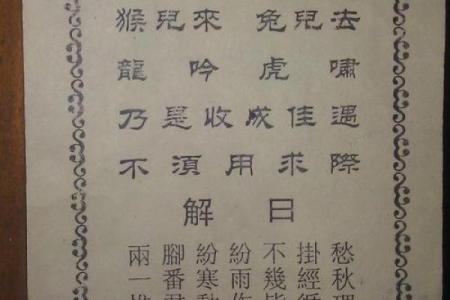 猴兒來 兔兒去
龍吟虎嘯
乃是收成佳遇
不須用求際
解曰
兩腳紛紛不掛愁
一番寒雨幾經秋